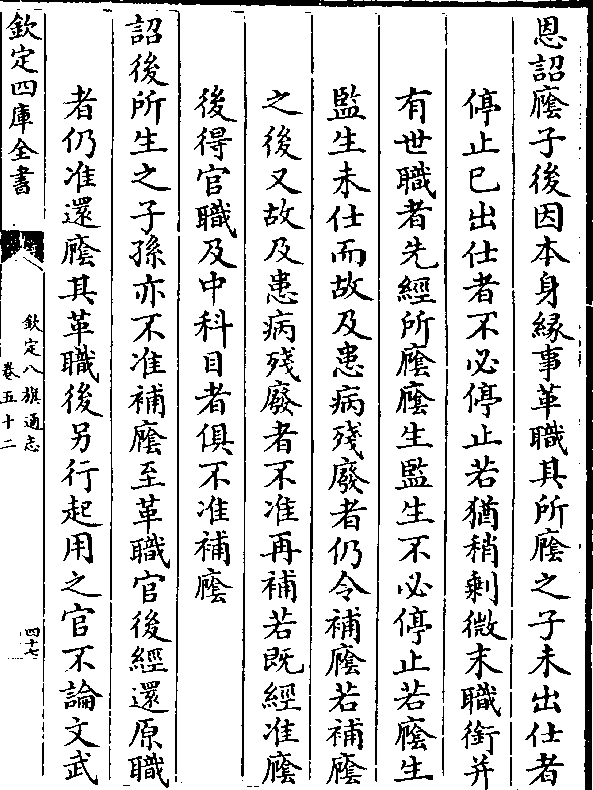 恩詔廕子後因本身緣事革職其所廕之子未出仕者
停止已出仕者不必停止若猶稍剩微末職銜并
有世職者先經所廕廕生監生不必停止若廕生
監生未仕而故及患病殘廢者仍令補廕若補廕
之後又故及患病殘廢者不准再補若既經准廕
後得官職及中科目者俱不准補廕
詔後所生之子孫亦不准補廕至革職官後經還原職
者仍准還廕其革職後另行起用之官不論文武
欽定四庫全書
欽定八旗通志
卷五十二
四十七